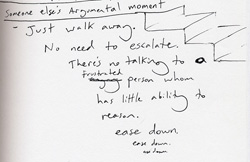 Someone else's Argumental moment
- Just walk away.
No need to escalate.
There's no talking to a
frustrated
person whom
has little ability to
reason.
ease down.
ease down.
ease down.